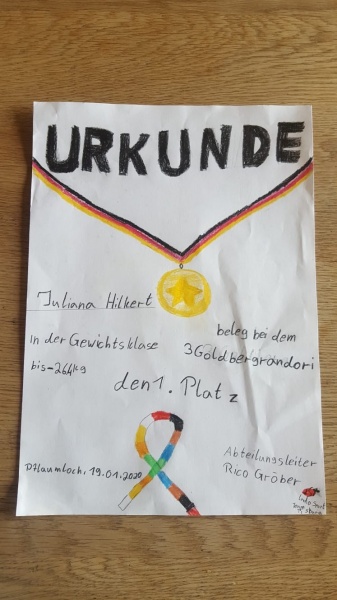 URKUNDE
Juliana Hilkert
in der Gewichtsklase
bis-26,4kg
beleg bei dem
3Goldbergrandori
den 1. Platz
Pflaumloch, 19.01.2020
Abteilungsleiter
Rico Gröber